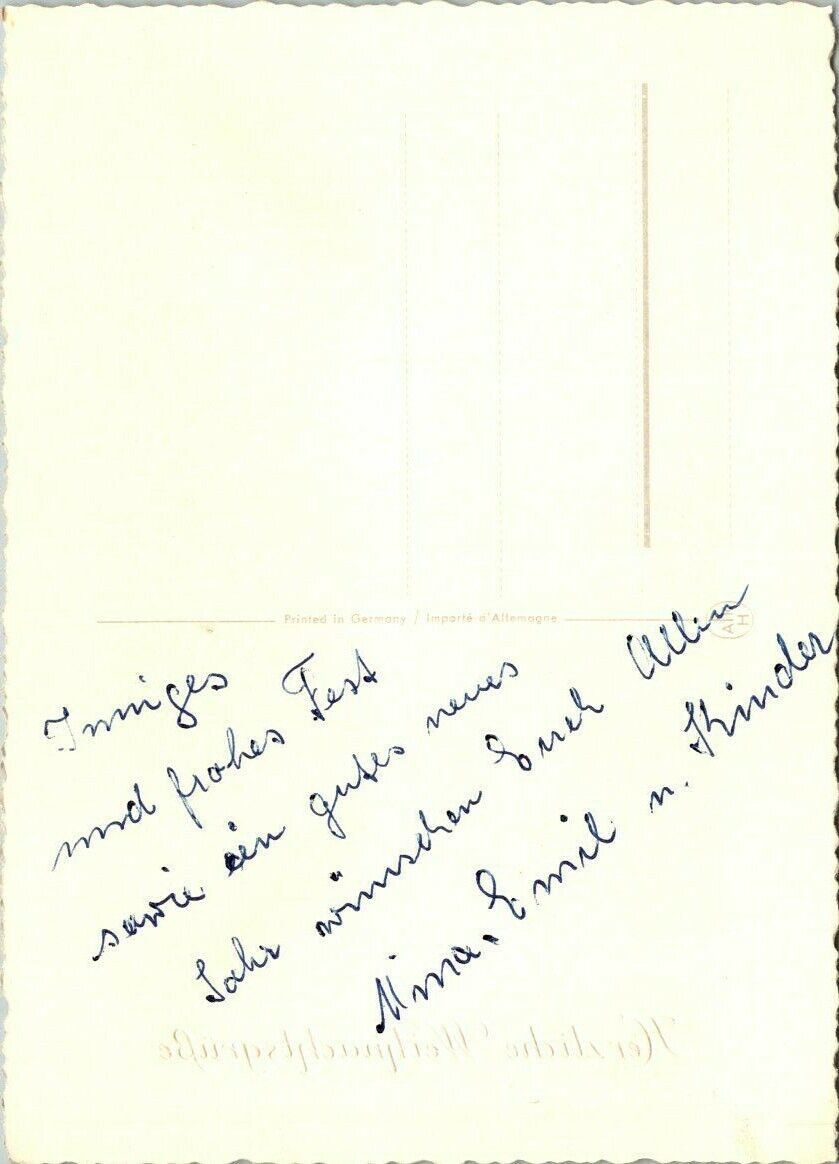 Printed in Germany / Importé d'Allemagne
AH
Inniges
und frohes Fest
sowie ein gutes neues
Jahr wünschen Euch Allen
Mina, Emil u. Kinder
Herzliche Weihnachtsgrüße